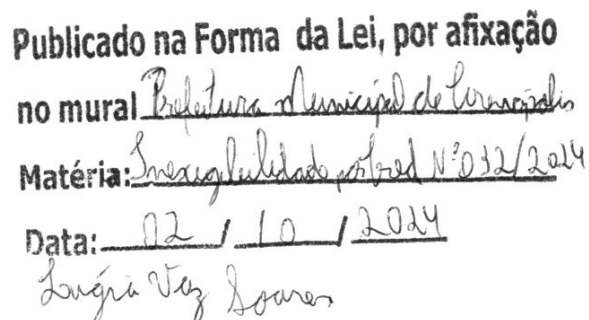 Publicado na Forma da Lei, por afixação
no mural Prefeitura Municipal de
Matéria: Inexigibilidade por Cred Nº 032/2024
Data: 02 / 10 / 2024
Vaz Soares